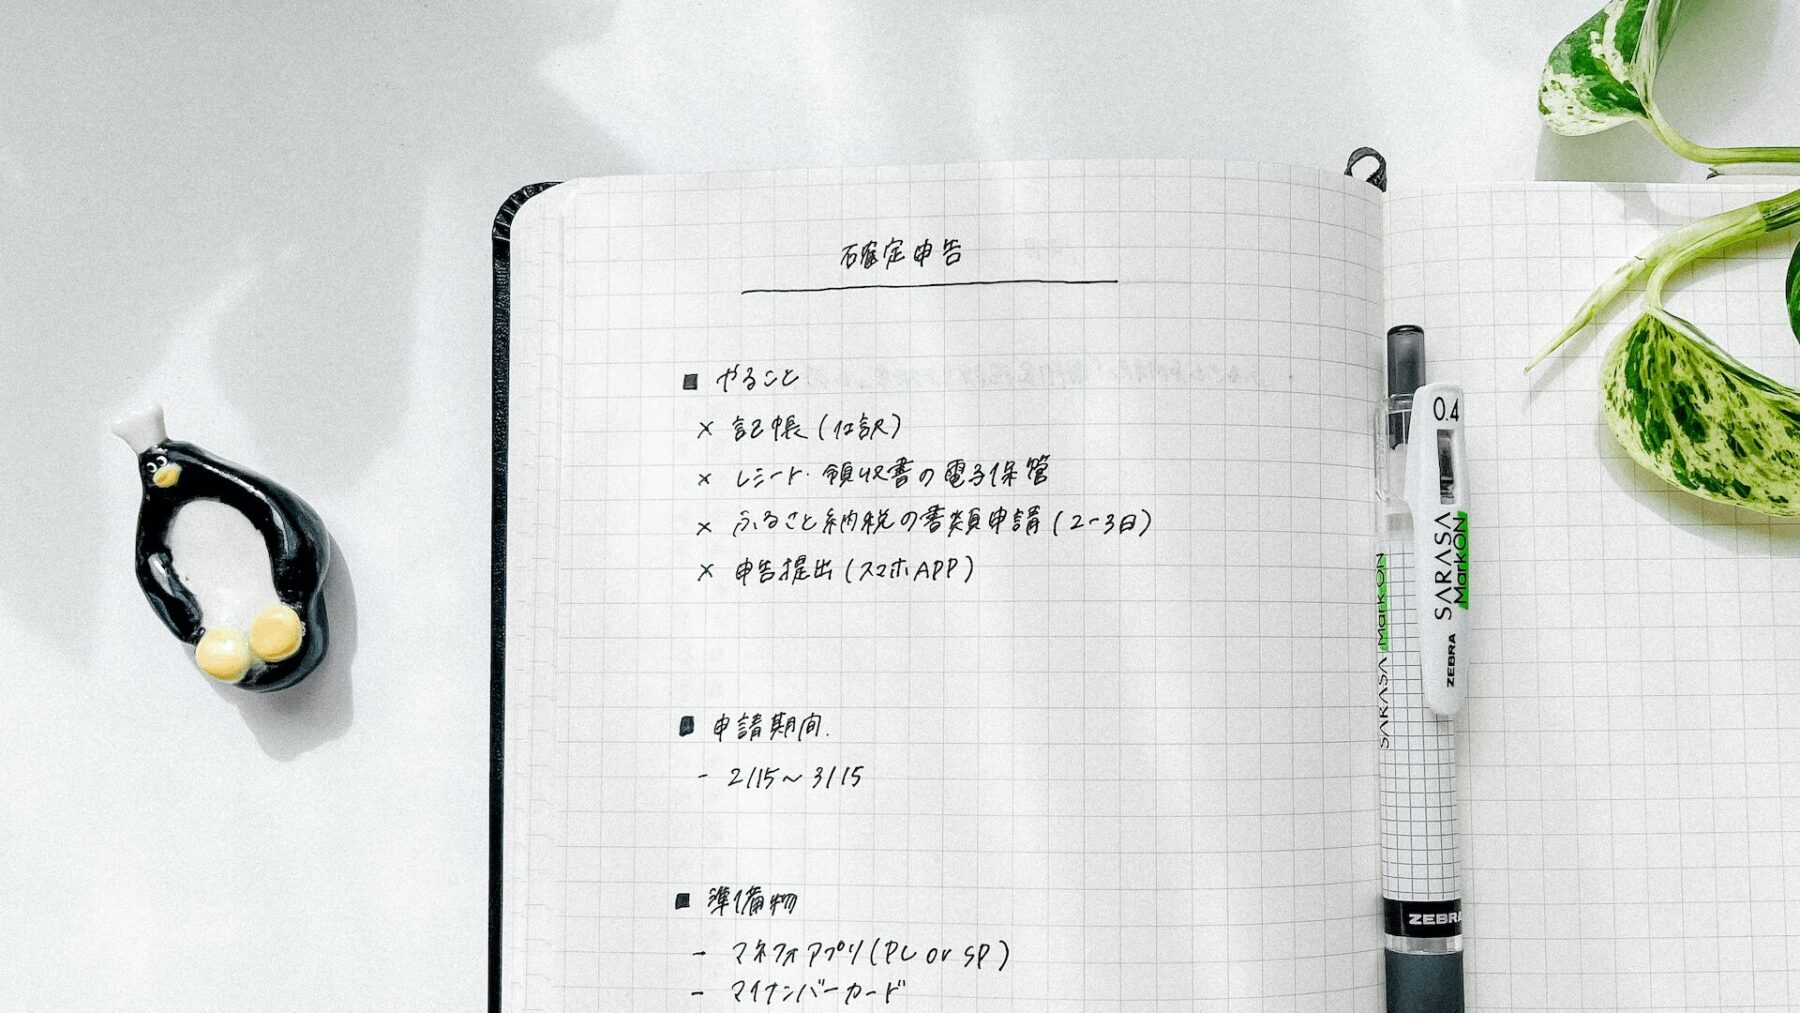 確定申告
■ やること
× 記帳(仕訳)
× レシート・領収書の電子保管
× ふるさと納税の書類申請(2-3日)
× 申告提出(スマホAPP)
■ 申請期間.
- 2/15〜3/15
■ 準備物
- マネフォアプリ(PC or SP)
- マイナンバーカード
0.4
SARASA
MarkON
ZEBRA
SARASA MarkON
ZEBRA